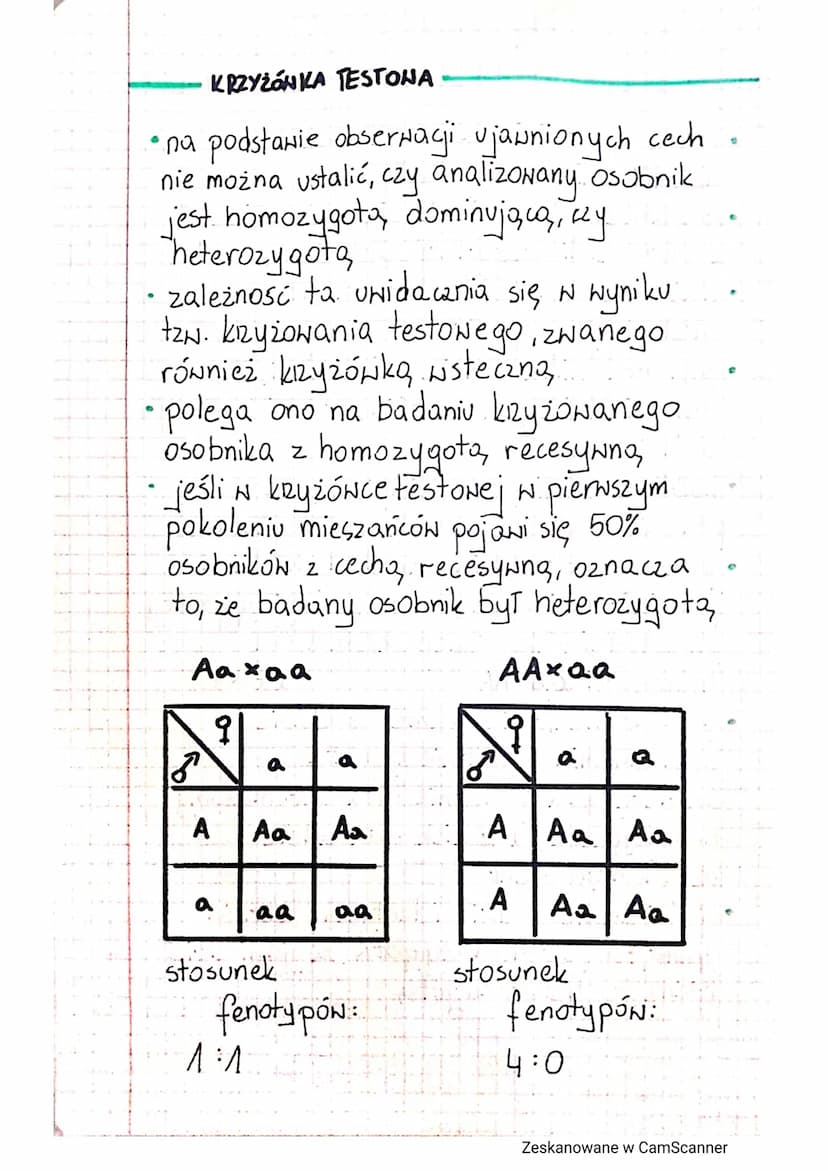 KRZYŻÓWKA TESTOWA
• na podstawie obserwacji ujawnionych cech
nie można ustalić, czy analizowany osobnik
jest homozygotą dominującą, czy
heterozygotą
• zależność ta uwidacznia się w wyniku
tzw. krzyżowania testowego, zwanego
również krzyżówką wsteczną
• polega ono na badaniu krzyżowanego
osobnika z homozygotą recesywną
• jeśli w krzyżówce testowej w pierwszym
pokoleniu mieszańców pojawi się 50%
osobników z cechą recesywną, oznacza
to, że badany osobnik był heterozygotą
Aa x aa
♀
♂ a a
A Aa Aa
a aa aa
stosunek
fenotypów:
1:1
AA x aa
♀
♂ a a
A Aa Aa
A Aa Aa
stosunek
fenotypów:
4:0
Zeskanowane w CamScanner